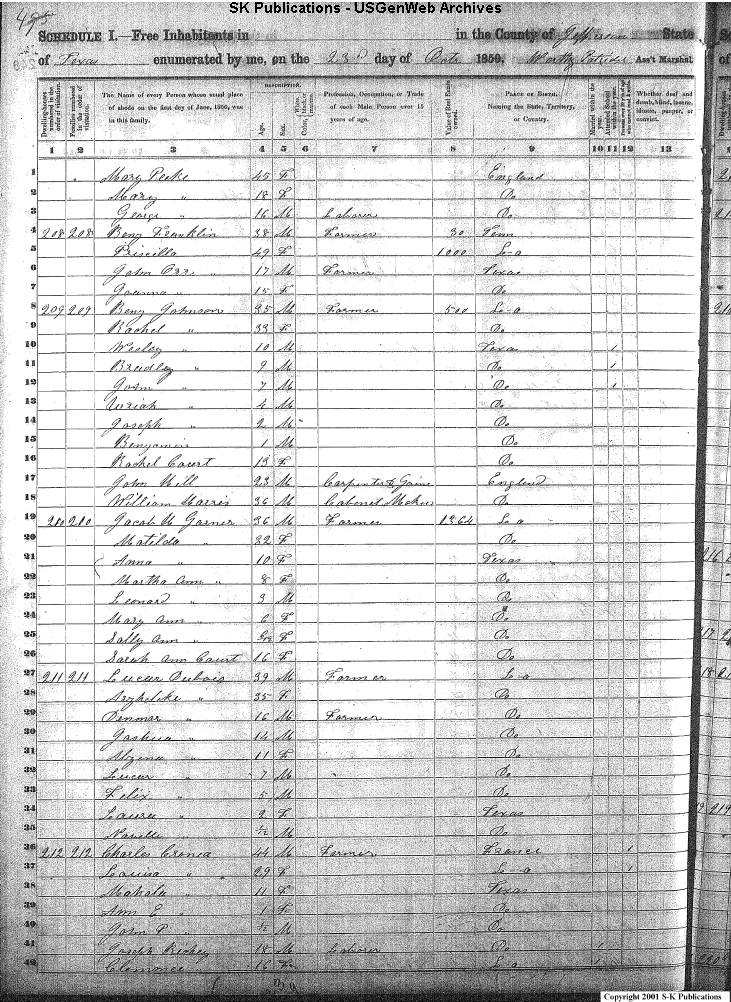 SK Publications - USGenWeb Archives
SCHEDULE I.—Free Inhabitants in in the County of Jefferson State
of Texas enumerated by me, on the 23d day of Octr 1850. Worthy Patridge Ass't Marshal
DESCRIPTION.
Dwelling-houses numbered in the order of visitation.
Families numbered in the order of visitation.
The Name of every Person whose usual place of abode on the first day of June, 1850, was in this family.
Age.
Sex.
Profession, Occupation, or Trade of each Male Person over 15 years of age.
Value of Real Estate owned.
PLACE OF BIRTH. Naming the State, Territory, or Country.
Married within the year.
Whether deaf and dumb, blind, insane, idiotic, pauper, or convict.
1 2 3 4 5 6 7 8 9 10 11 12 13
1 " Mary Peeke 45 F England
2 Mary " 18 F Do
3 George " 16 M Laborer Do
4 208 208 Benj Franklin 38 M Farmer 30 Tenn
5 Priscilla 49 F 1000 L-a
6 John Orr " 17 M Farmer Texas
7 Joanna " 15 F Do
8 209 209 Benj Johnson 35 M Farmer 500 L-a
9 Rachel " 33 F Do
10 Wesley " 10 M Texas 1
11 Bradley " 9 M Do 1
12 John " 7 M Do 1
13 Uriah " 4 M Do
14 Joseph " 2 M Do
15 Benjamin 1 M Do
16 Rachel Court 13 F Do
17 John Hill 23 M Carpenter & Joiner England
18 William Harris 36 M Cabinet Maker Do
19 210 210 Jacob H Garner 36 M Farmer 1364 L-a
20 Matilda " 32 F Do
21 Anna " 10 F Texas
22 Martha Ann " 8 F Do
23 Leonard " 3 M Do
24 Mary Ann " 6 F Do
25 Sally Ann " F Do
26 Sarah Ann Court 16 F Do
27 211 211 Lucur Dubois 39 M Farmer L-a
28 35 F Do
29 Denmar " 16 M Farmer Do
30 14 M Do
31 Alzena " 11 F Do
32 Lucur " 7 M Do
33 Felix " 5 M Do
34 Laura " 2 F Texas
35 " 1/2 M Do
36 212 212 Charles Cronea 44 M Farmer France 1
37 Louisa " 29 F L-a 1
38 Mahala " 11 F Texas
39 Ann E " 1 F Do
40 John P " 1/2 M Do
41 Joseph 18 M Laborer Do 1
42 Clemonce " 16 F L-a 1
Copyright 2001 S-K Publications